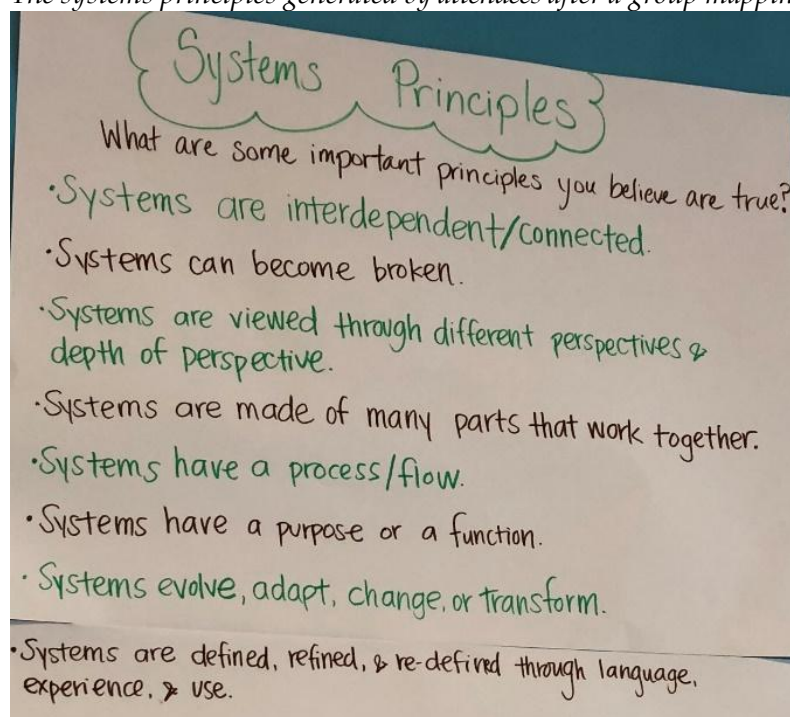 The systems principles generated by attendees after a group mappin
Systems Principles
What are some important principles you believe are true?
·Systems are interdependent/connected.
·Systems can become broken.
·Systems are viewed through different perspectives &
depth of perspective.
·Systems are made of many parts that work together.
·Systems have a process/flow.
·Systems have a purpose or a function.
·Systems evolve, adapt, change, or transform.
·Systems are defined, refined, & re-defined through language,
experience, & use.